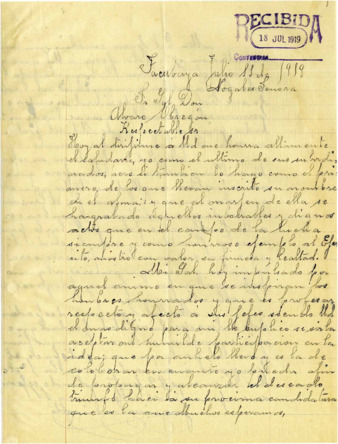 RECIBIDA
18 JUL 1919
Tacubaya Julio 11 de 1919
Nogales Sonora
Sr Gral Don
Alvaro Obregón
Respetable Sr
Hoy al dirijirme á Ud me honra altamente
el saludarlo, yo como el ultimo de sus subordi
nados, pero si tambien lo hago como el pri
mero, de los que llevan inscrito su nombre
en el y que al margen de ella se
han grabado aquellos imborrables y dignos
actos que en el campo de la lucha
siempre y como honroso ejemplo al Ejer
cito, mostró con valor, su pericia y lealtad.
Mi Gral. hoy impulsado por
aquel animo en que se inspiran los
hombres honrados y que es profesar
respecto y afecto á sus Jefes siendo Ud
el mas digno para mi, le suplico se sirva
aceptar mi humilde participacion en la
idea, que por anhelo llevo y es la de
colaborar en conjunto y o aislado afin
de propagar y alcanzar el deseado
triunfo hacia la su proxima candidatura
que es la que muchos esperamos,